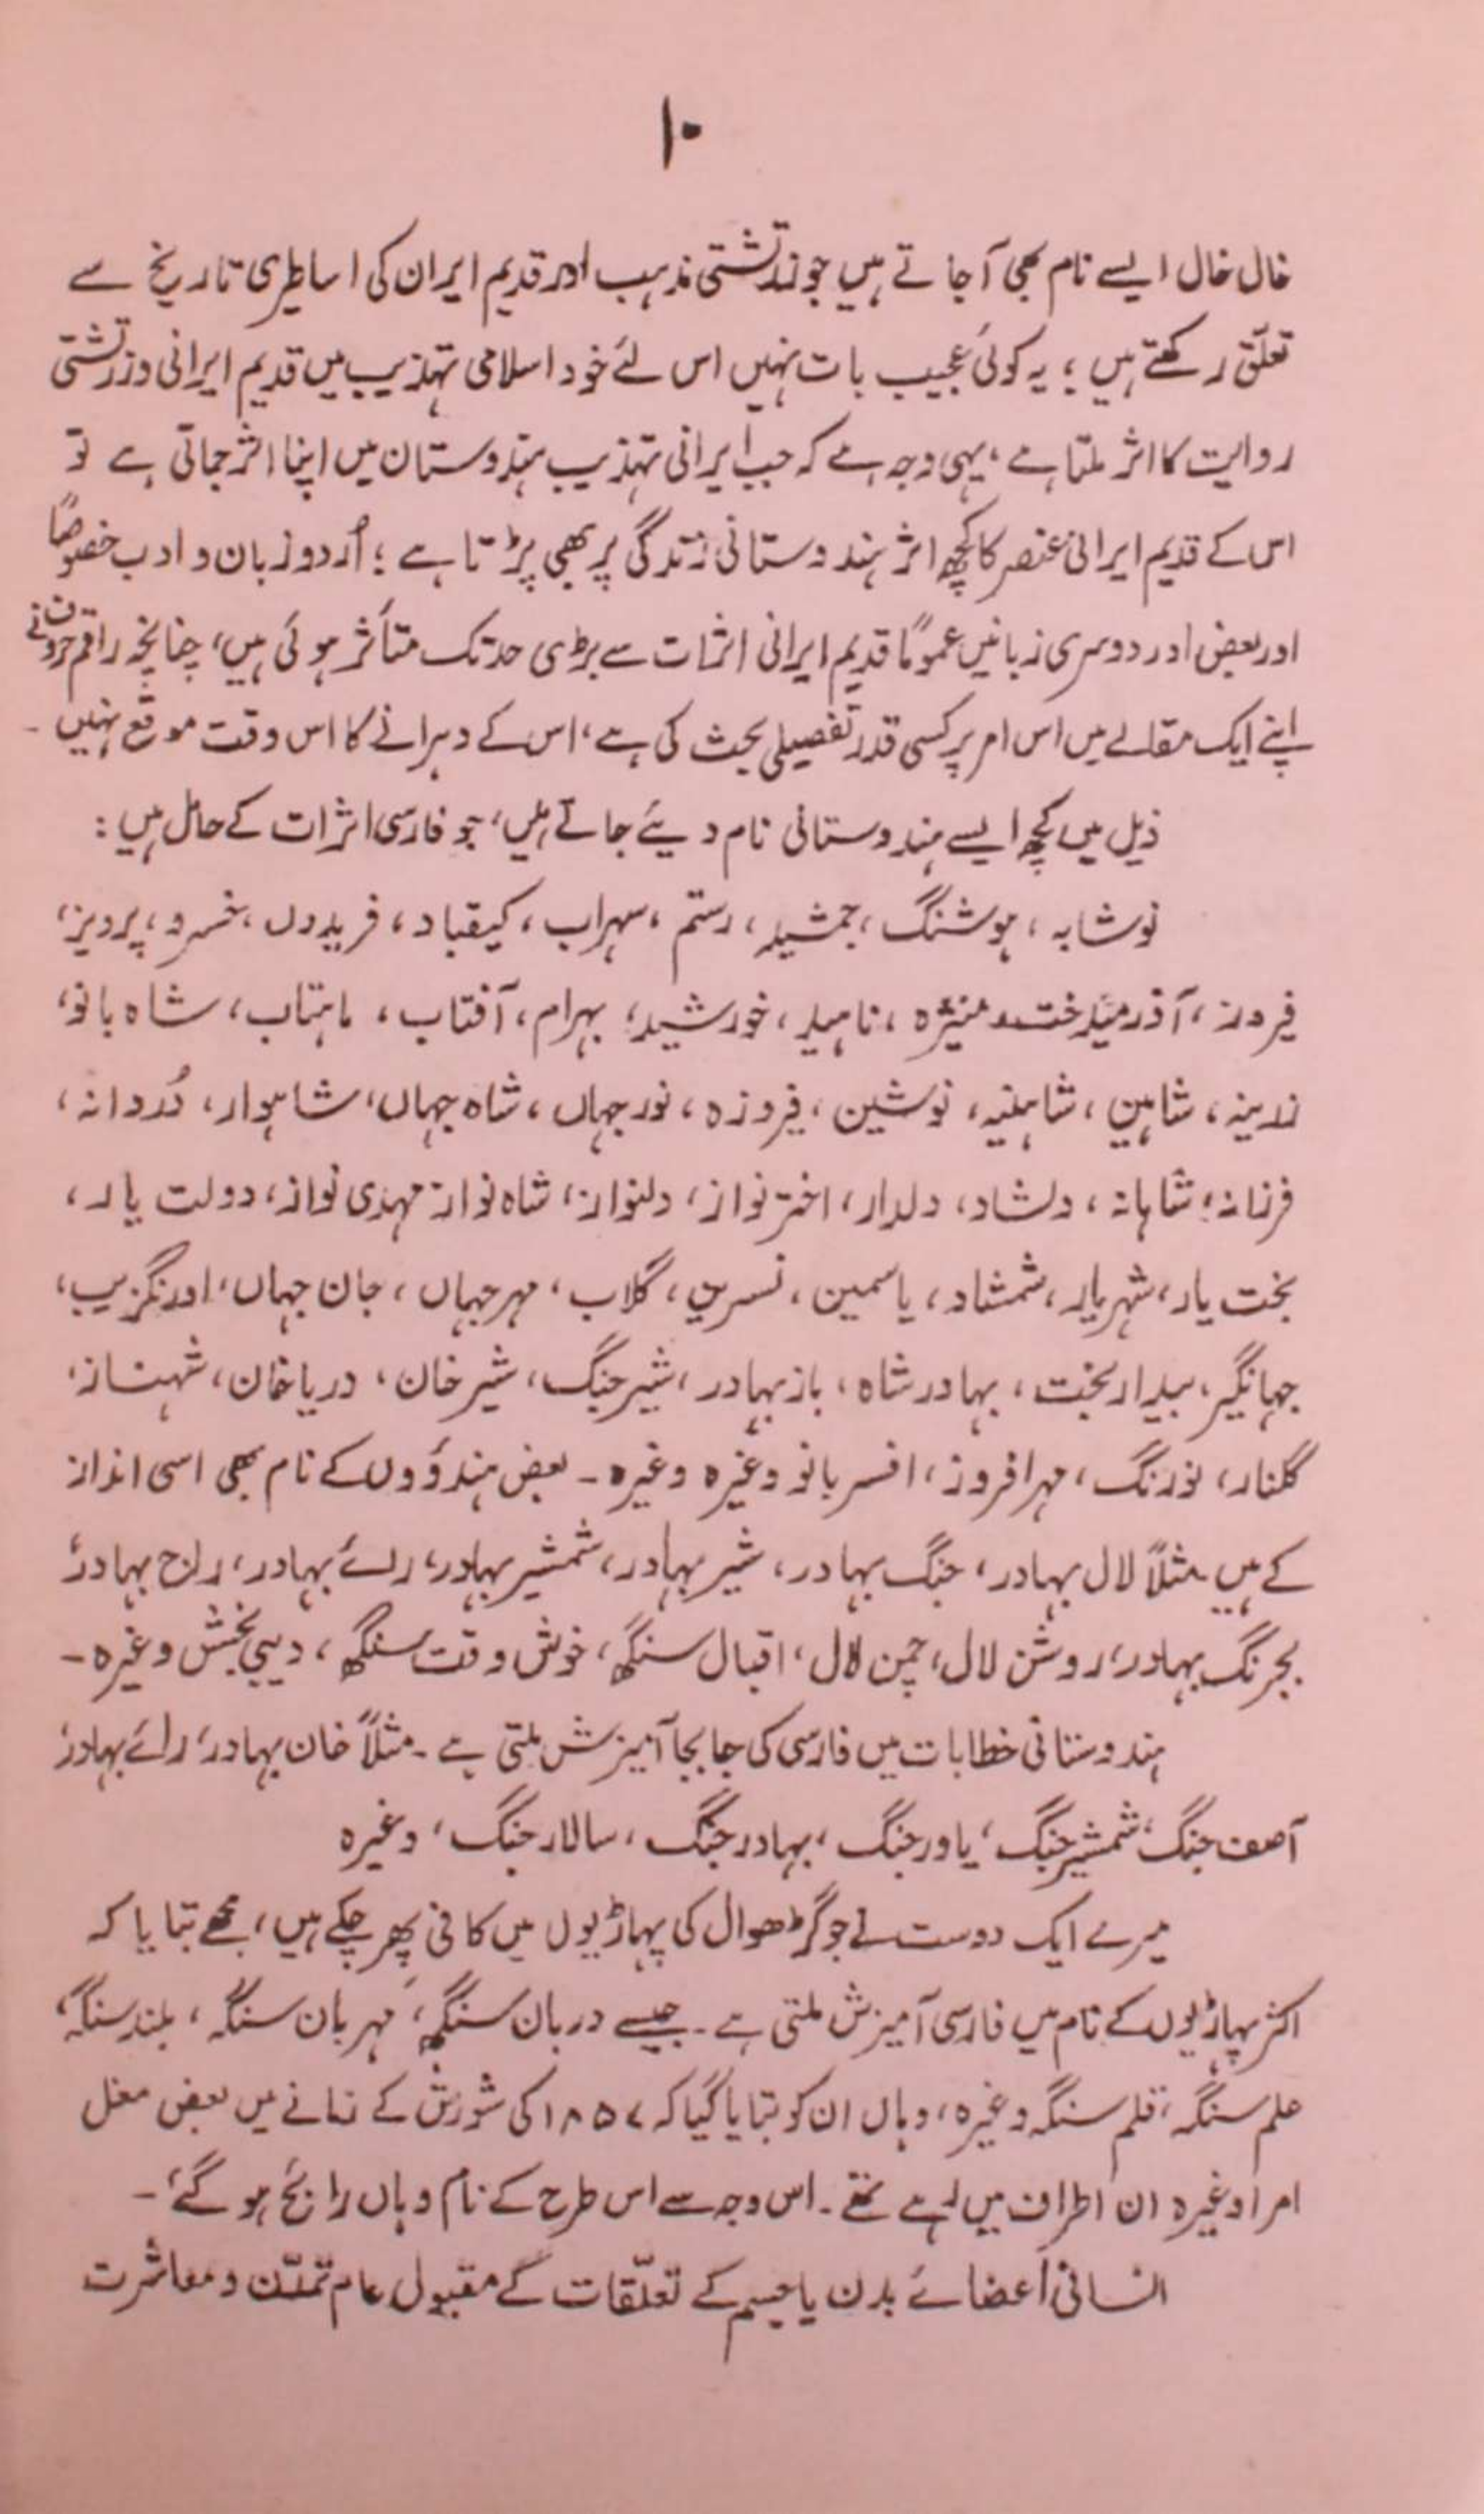 ۱۰
خال خال ایسے نام بھی آجاتے ہیں جو زرتشتی مذہب اور قدیم ایران کی اساطیری تاریخ سے
تعلّق رکھتے ہیں ؛ یہ کوئی عجیب بات نہیں اس لئے خود اسلامی تہذیب میں قدیم ایرانی و زرتشتی
روایت کا اثر ملتا ہے ، یہی وجہ ہے کہ جب ایرانی تہذیب ہندوستان میں اپنا اثر جماتی ہے تو
اس کے قدیم ایرانی عنصر کا کچھ اثر ہندوستانی زندگی پر بھی پڑتا ہے ؛ اُردو زبان و ادب خصوصاً
اور بعض اور دوسری زبانیں عموماً قدیم ایرانی اثرات سے بڑی حد تک متأثر ہوئی ہیں، چنانچہ راقم حروف نے
اپنے ایک مقالے میں اس امر پر کسی قدر تفصیلی بحث کی ہے ، اس کے دہرانے کا اس وقت موقع نہیں ۔
ذیل میں کچھ ایسے ہندوستانی نام دیئے جاتے ہیں، جو فارسی اثرات کے حامل ہیں :
نوشابہ ، ہوشنگ ، جمشید ، رستم ، سہراب ، کیقباد ، فریدوں ، خسرو ، پرویز ،
فیروز ، آذرمیدخت منیژہ ، ناہید ، خورشید ، بہرام ، آفتاب ، ماہتاب ، شاہ بانو ،
زرینہ ، شاہین ، شاہینہ ، نوشین ، فیروزہ ، نورجہاں ، شاہ جہاں ، شاہوار ، دُردانہ ،
فرزانہ ، شاہانہ ، دلشاد ، دلدار ، اختر نواز ، دلنواز ، شاہ نواز مہدی نواز ، دولت یار ،
بخت یار ، شہریار ، شمشاد ، یاسمین ، نسرین ، گلاب ، مہرجہاں ، جان جہاں ، اورنگزیب ،
جہانگیر ، بیدار بخت ، بہادر شاہ ، باز بہادر ، شیر جنگ ، شیر خان ، دریا خان ، شہناز ،
گلنار ، نورنگ ، مہر افروز ، افسر بانو وغیرہ وغیرہ ۔ بعض ہندوؤں کے نام بھی اسی انداز
کے ہیں مثلاً لال بہادر ، جنگ بہادر ، شیر بہادر ، شمشیر بہادر ، رائے بہادر ، راج بہادر ،
بجرنگ بہادر ، روشن لال ، چمن لال ، اقبال سنگھ ، خوش وقت سنگھ ، دیبی بخش وغیرہ ۔
ہندوستانی خطابات میں فارسی کی جابجا آمیزش ملتی ہے ۔ مثلاً خان بہادر ، رائے بہادر ،
آصف جنگ ، شمشیر جنگ ، یاور جنگ ، بہادر جنگ ، سالار جنگ ، وغیرہ
میرے ایک دوست نے جو گڑھوال کی پہاڑیوں میں کافی پھر چکے ہیں ، مجھے بتایا کہ
اکثر پہاڑیوں کے نام میں فارسی آمیزش ملتی ہے ۔ جیسے دربان سنگھ ، مہربان سنگہ ، بلند سنگہ ،
علم سنگہ ، قلم سنگہ وغیرہ ، وہاں ان کو بتایا گیا کہ ۱۸۵۷ کی شورش کے زمانے میں بعض مغل
امرا وغیرہ ان اطراف میں بسے تھے ۔ اس وجہ سے اس طرح کے نام وہاں رائج ہو گئے ۔
انسانی اعضائے بدن یا جسم کے تعلّقات کے مقبول عام تمدّن و معاشرت